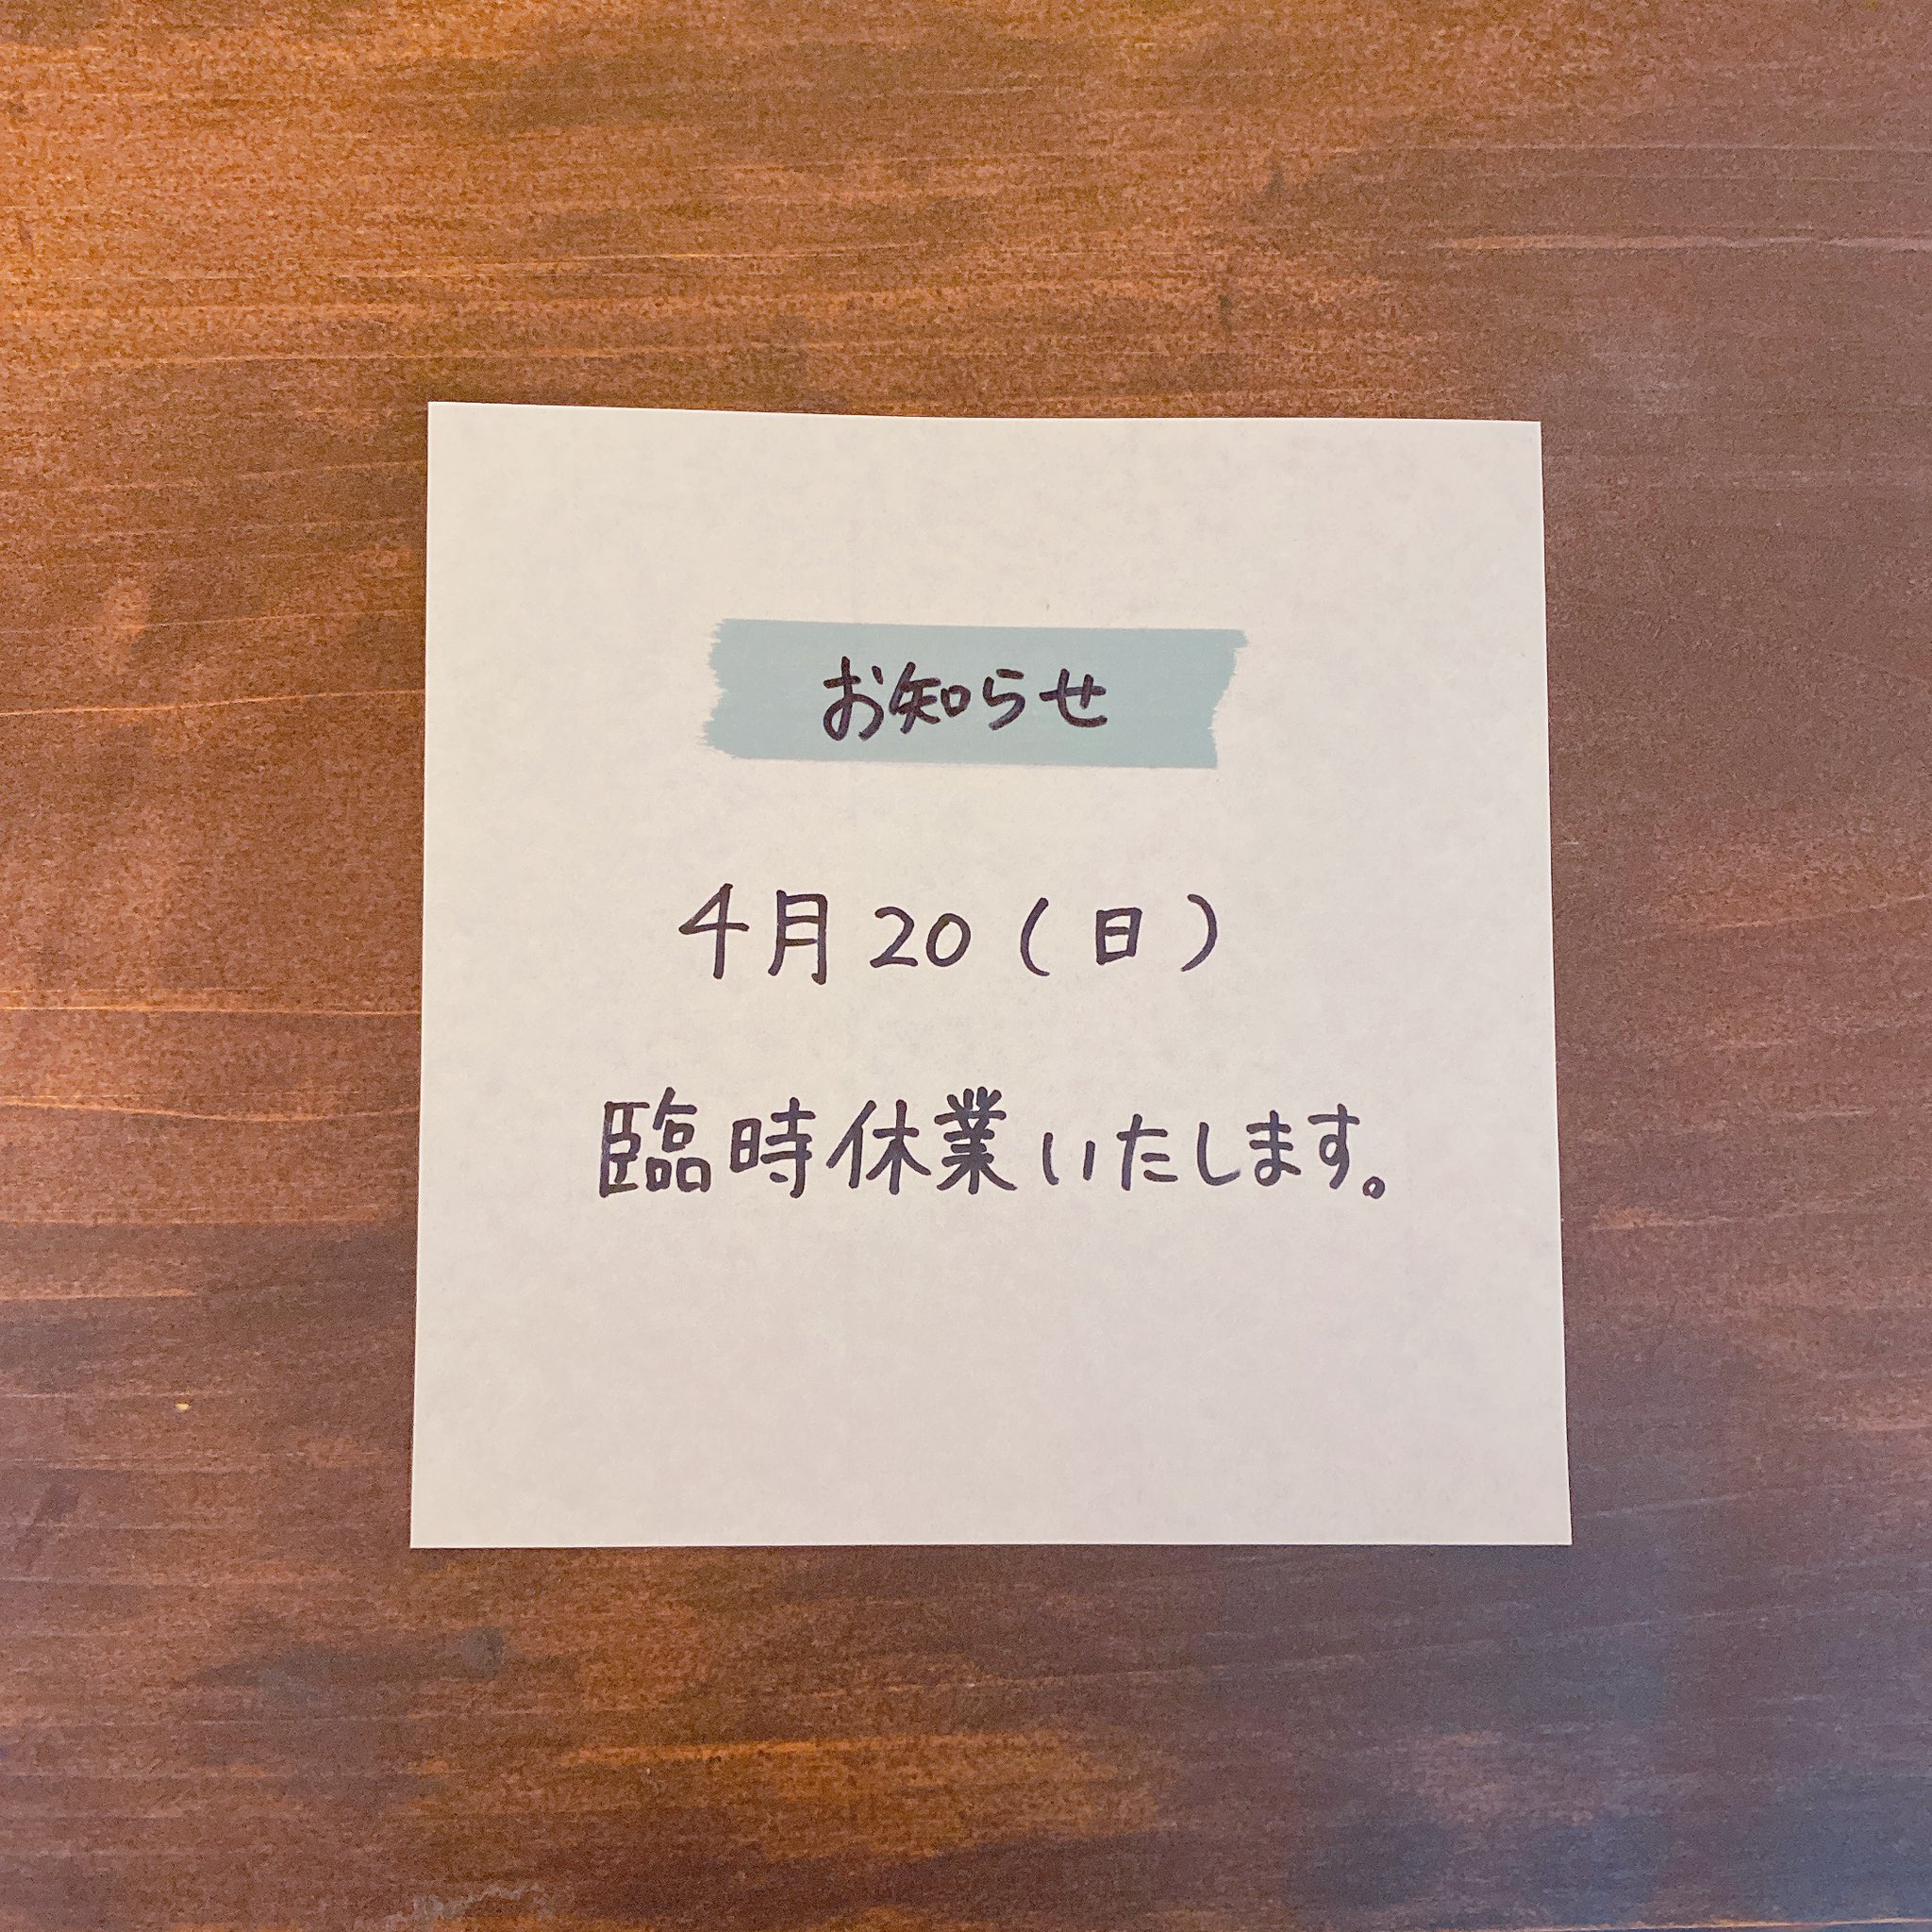 お知らせ
4月20(日)
臨時休業いたします。